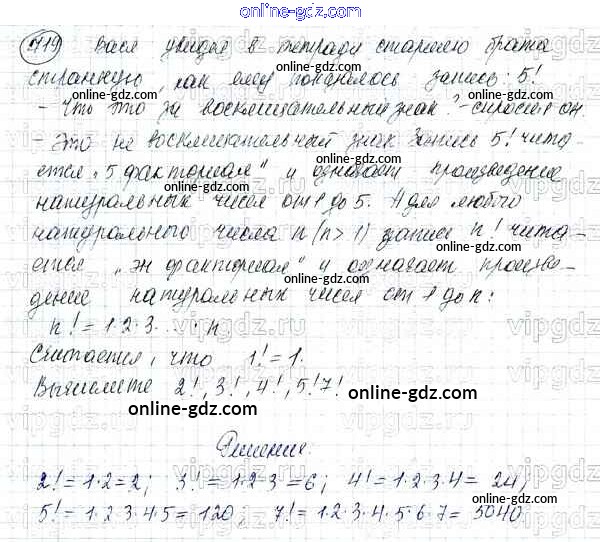 online-gdz.com
719 Вася увидел в тетради старшего брата
странную, как ему показалось запись: 5!
- Что это за восклицательный знак? - спросил он.
- Это не восклицательный знак Запись 5! чита-
ется „5 факториал" и означает произведение
натуральных чисел от 1 до 5. А для любого
натурального числа n (n > 1) запись n! чита-
ется „эн факториал" и означает произве-
дение натуральных чисел от 1 до n:
n! = 1·2·3. ... · n
Считается, что 1! = 1.
Вычислите 2!, 3!, 4!, 5! 7!
online-gdz.com
Решение.
2! = 1·2 = 2; 3! = 1·2·3 = 6; 4! = 1·2·3·4 = 24;
5! = 1·2·3·4·5 = 120; 7! = 1·2·3·4·5·6·7 = 5040